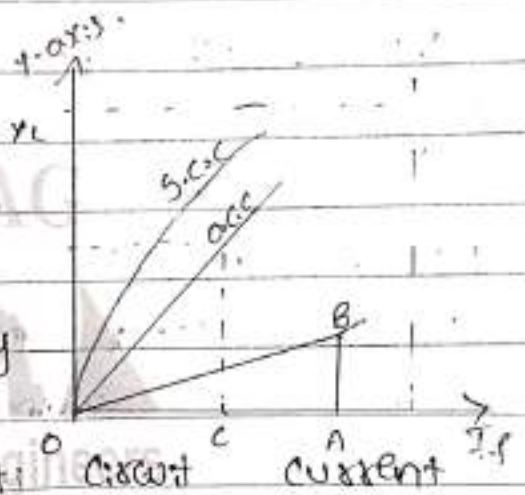 Y-axis.
YL
S.C.C
O.C.C
B
y
O C A If
Circuit Current